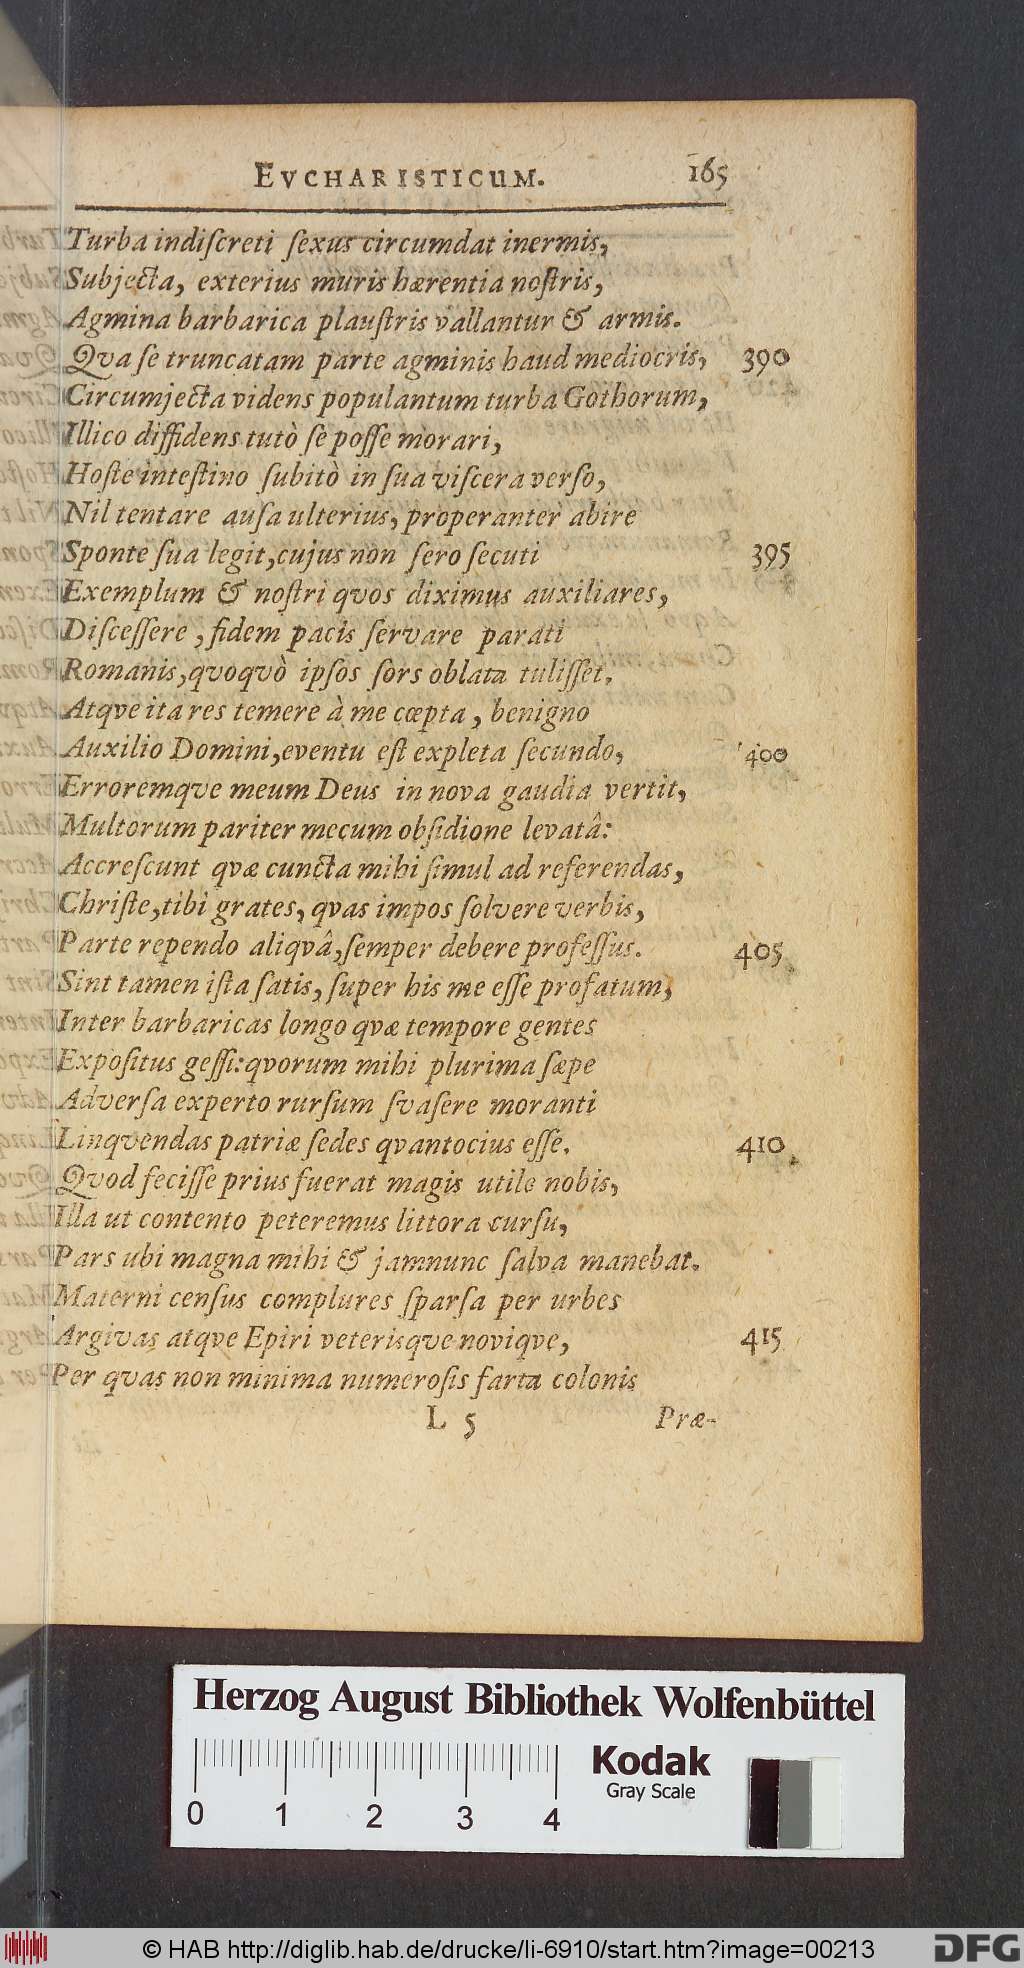 EVCHARISTICUM. 165
Turba indiſcreti ſexus circumdat inermis,
Subjecta, exterius muris hærentia noſtris,
Agmina barbarica plauſtris vallantur & armis.
Qva ſe truncatam parte agminis haud mediocris, 390
Circumjecta videns populantum turba Gothorum,
Illico diffidens tutò ſe poſſe morari,
Hoſte inteſtino ſubitò in ſua viſcera verſo,
Nil tentare auſa ulterius, properanter abire
Sponte ſua legit, cujus non ſero ſecuti 395
Exemplum & noſtri qvos diximus auxiliares,
Diſceſſere, fidem pacis ſervare parati
Romanis, qvoqvò ipſos ſors oblata tuliſſet.
Atqve ita res temere à me cœpta, benigno
Auxilio Domini, eventu eſt expleta ſecundo, 400
Erroremqve meum Deus in nova gaudia vertit,
Multorum pariter mecum obſidione levatâ:
Accreſcunt qvæ cuncta mihi ſimul ad referendas,
Chriſte, tibi grates, qvas impos ſolvere verbis,
Parte rependo aliqvâ, ſemper debere profeſſus. 405
Sint tamen iſta ſatis, ſuper his me eſſe profatum,
Inter barbaricas longo qvæ tempore gentes
Expoſitus geſſi: qvorum mihi plurima ſæpe
Adverſa experto rurſum ſvaſere moranti
Linqvendas patriæ ſedes qvantocius eſſe. 410
Qvod feciſſe prius fuerat magis utile nobis,
Illa ut contento peteremus littora curſu,
Pars ubi magna mihi & jamnunc ſalva manebat.
Materni cenſus complures ſparſa per urbes
Argivas atqve Epiri veterisqve noviqve, 415
Per qvas non minima numeroſis farta colonis
L 5 Præ-
Herzog August Bibliothek Wolfenbüttel
Kodak
Gray Scale
0 1 2 3 4
© HAB http://diglib.hab.de/drucke/li-6910/start.htm?image=00213
DFG